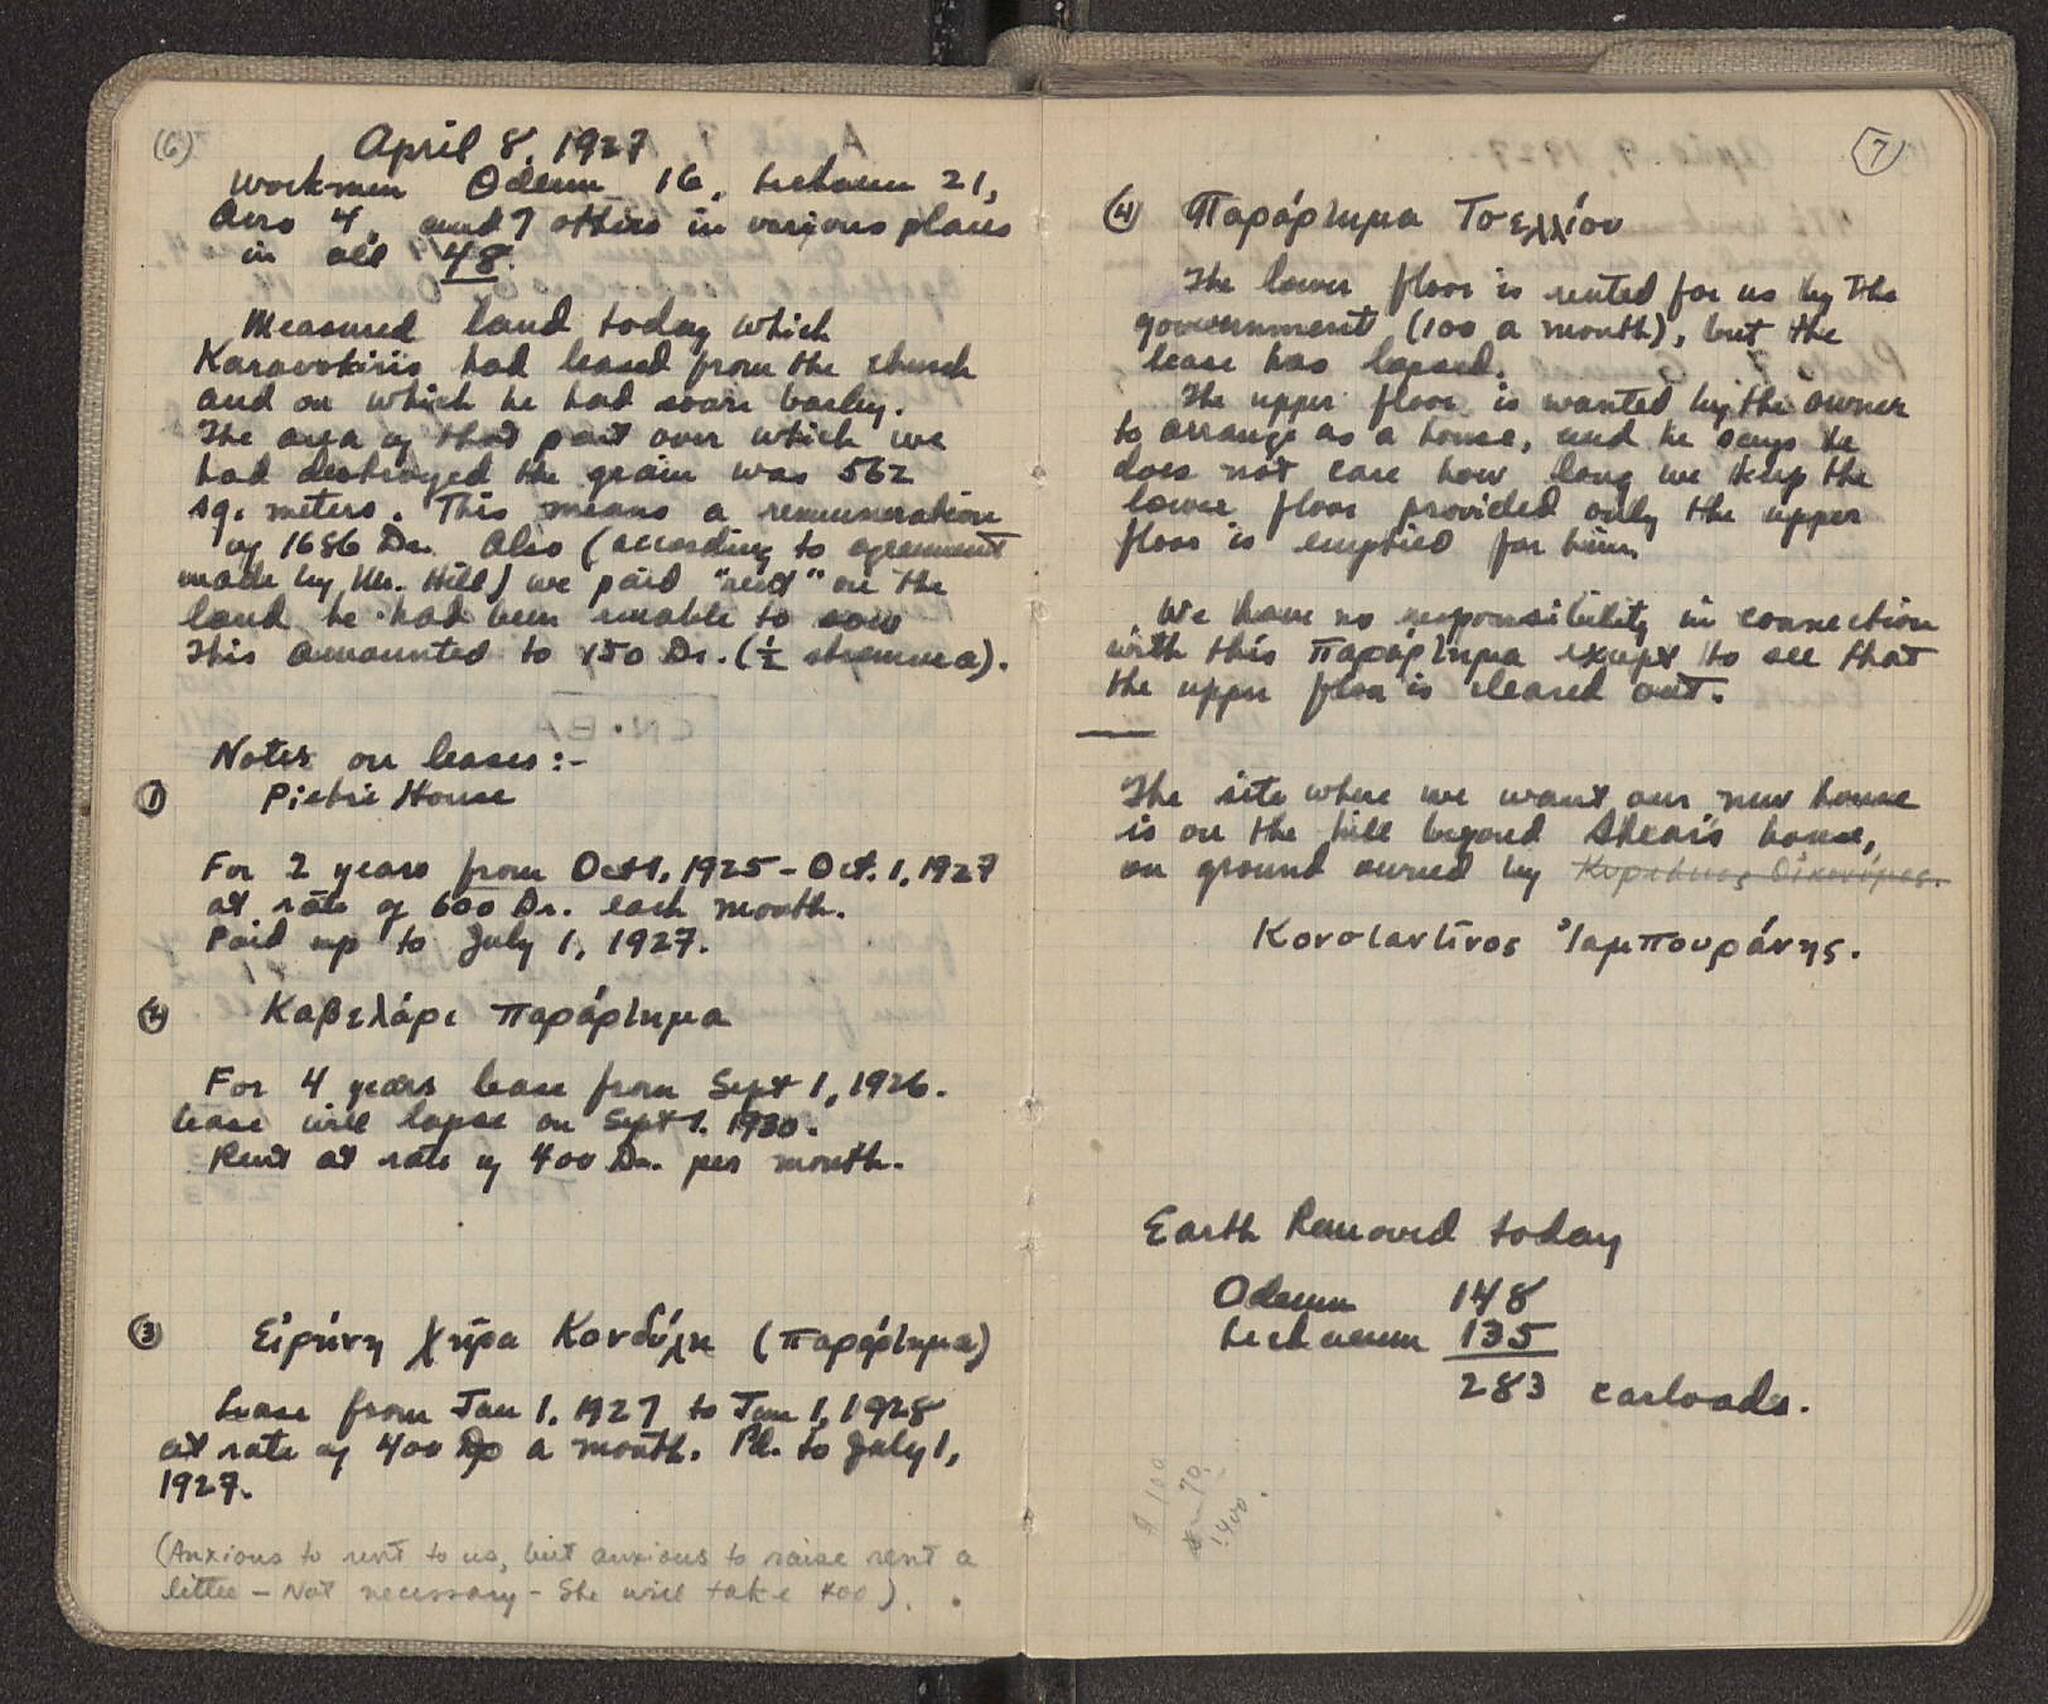 (6)
April 8, 1927
Workmen Odeum 16, Lechaeum 21,
Acro 4, and 7 others in various places
in all 48.
Measured land today which
Karavokiris had leased from the church
and on which he had sown barley.
The area of that part over which we
had destroyed the grain was 562
sq. meters. This means a remuneration
of 1686 Dr. Also (according to agreement
made by Mr. Hill) we paid "rent" on the
land he had been unable to sow
This amounted to 150 Dr. (½ stremma).
Notes on leases:-
① Pietri House
For 2 years from Oct 1, 1925 - Oct. 1, 1927
at rate of 600 Dr. each month.
Paid up to July 1, 1927.
② Καβελάρι παράρτημα
For 4 years lease from Sept 1, 1926.
Lease will lapse on Sept 1. 1930.
Rent at rate of 400 Dr. per month.
③ Εἰρήνη χήρα Κονδύλη (παράρτημα)
Lease from Jan 1, 1927 to Jan 1, 1928
at rate of 400 Dr a month. Pd. to July 1,
1927.
(Anxious to rent to us, but anxious to raise rent a
little - Not necessary - She will take 400).
7
④ Παράρτημα Τσελλίου
The lower floor is rented for us by the
government (100 a month), but the
lease has lapsed.
The upper floor is wanted by the owner
to arrange as a house, and he says he
does not care how long we keep the
lower floor provided only the upper
floor is emptied for him.
We have no responsibility in connection
with this Παράρτημα except to see that
the upper floor is cleared out.
The site where we want our new house
is on the hill beyond Shear's house,
on ground owned by
Κονσταντῖνος Ἰαμπουράνης.
Earth Removed today
Odeum 148
Lechaeum 135
283 carloads.
70
1400